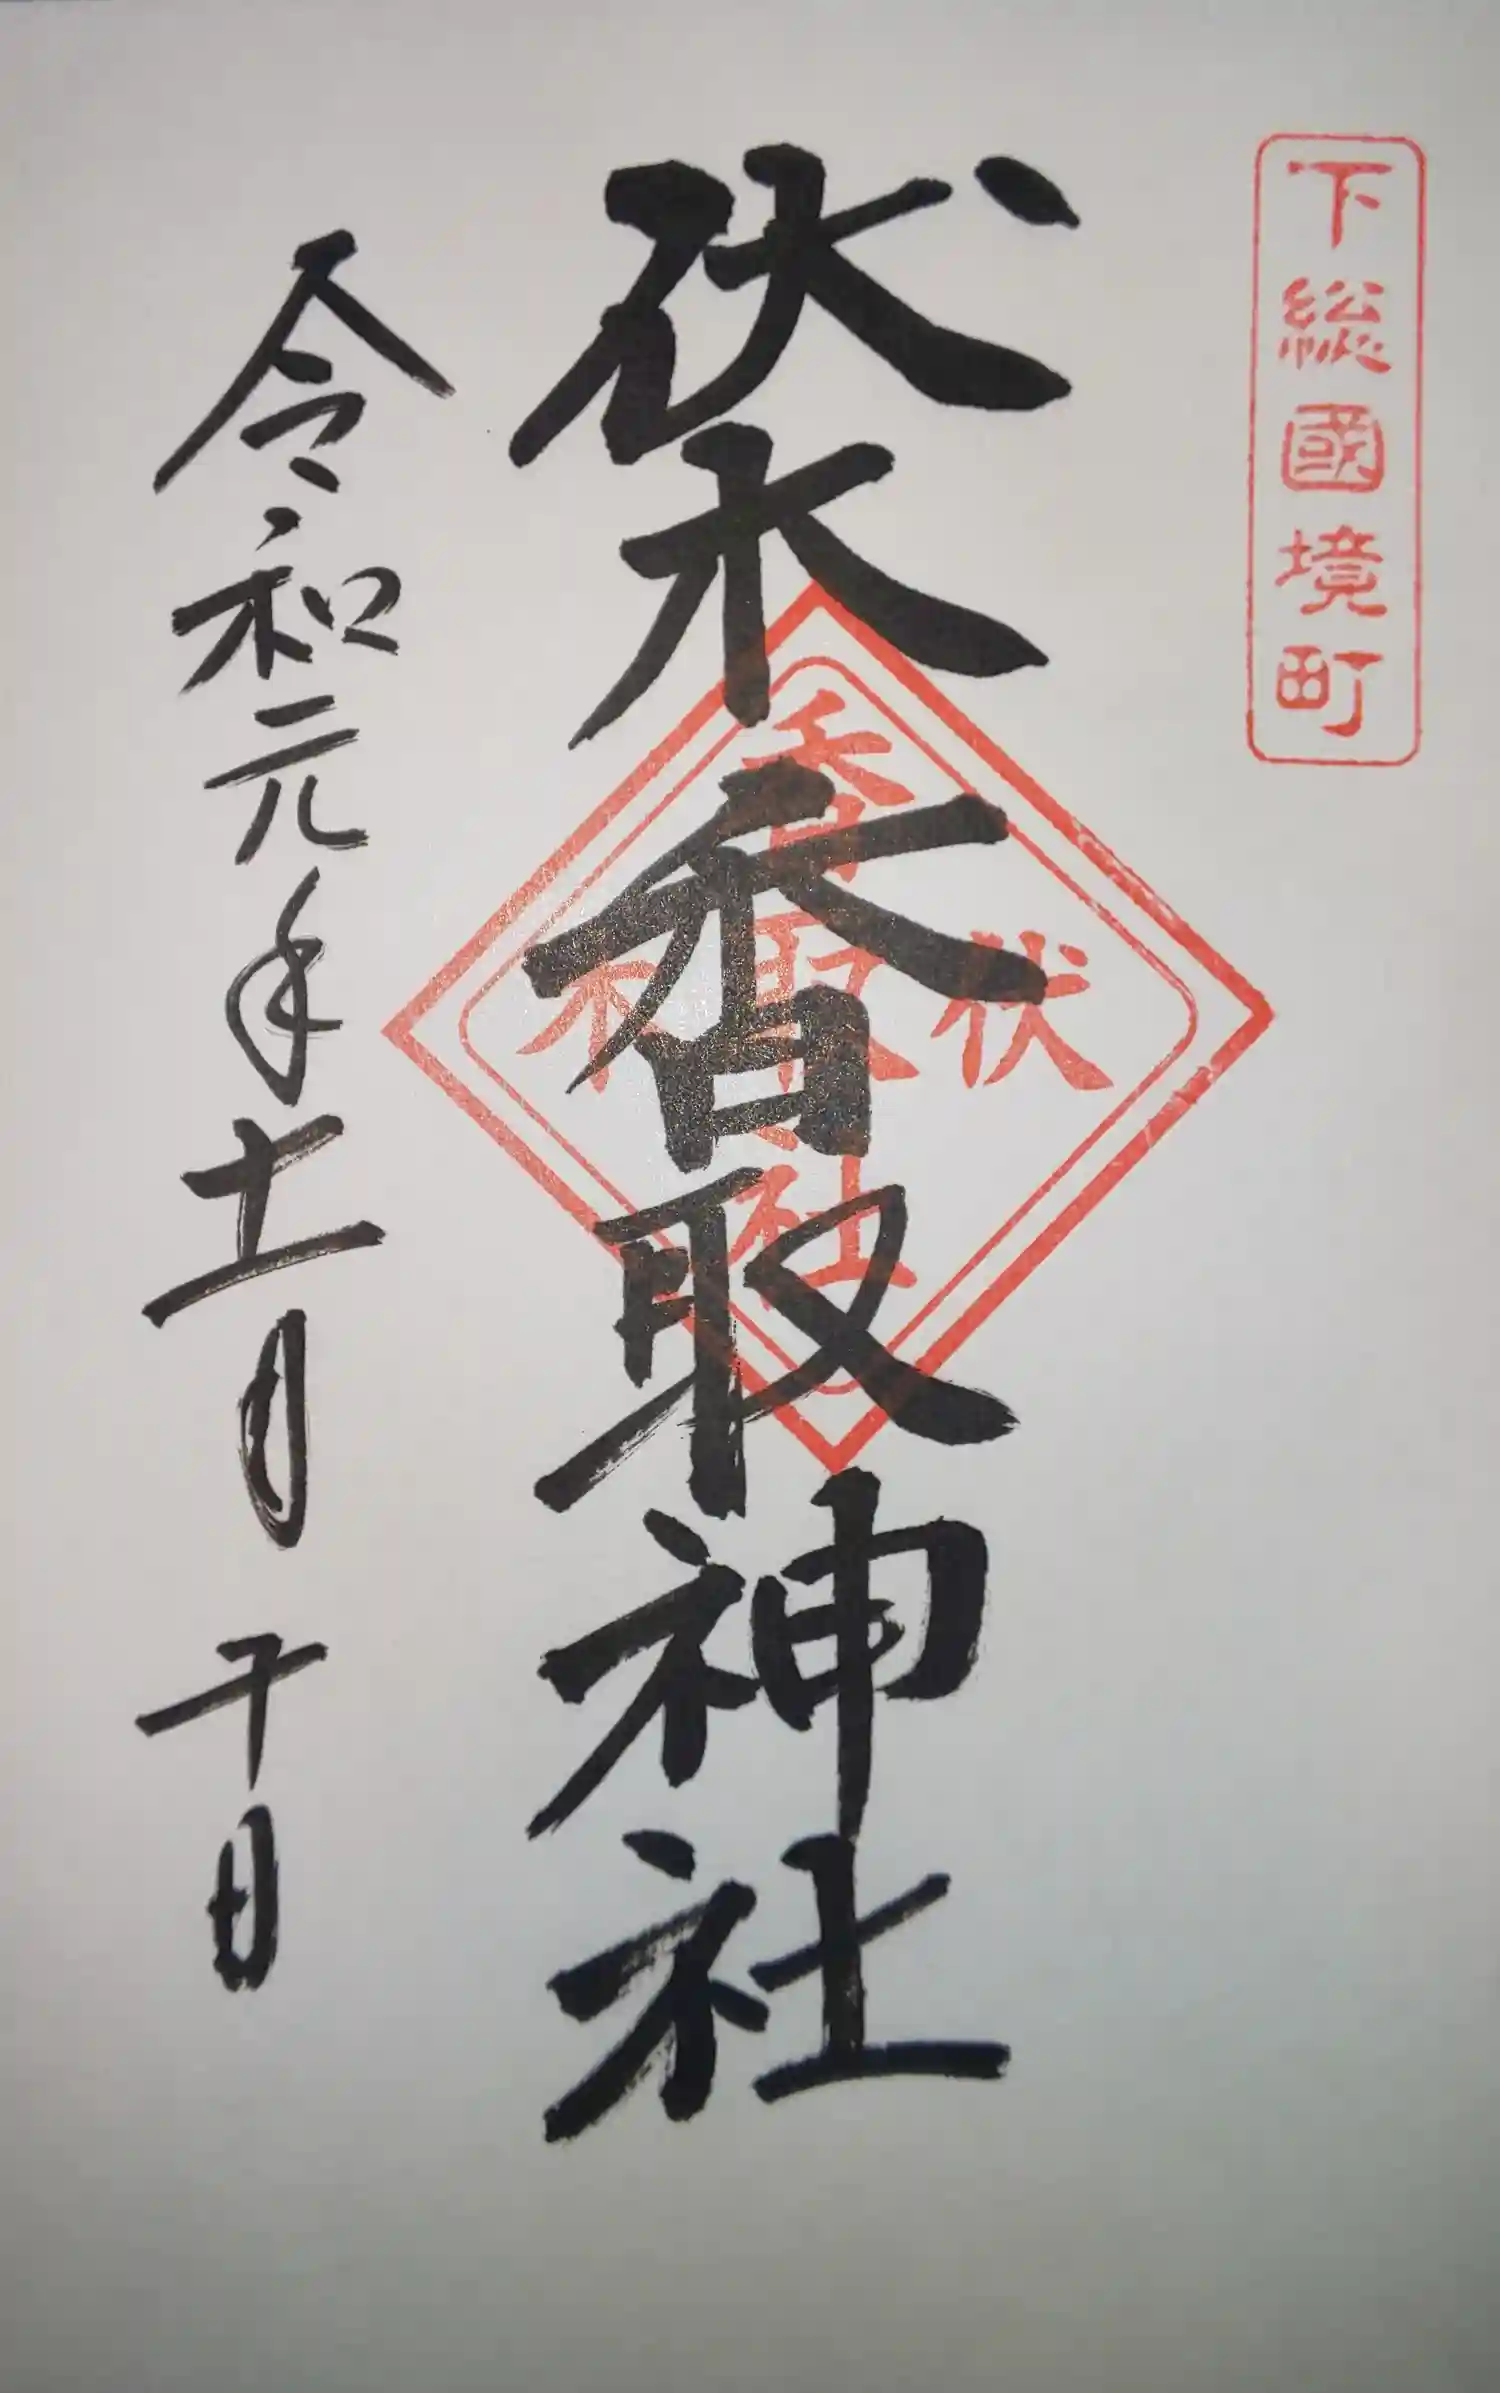 下総國境町
伏木香取神社
伏木
香取社
令和元年十一月 日